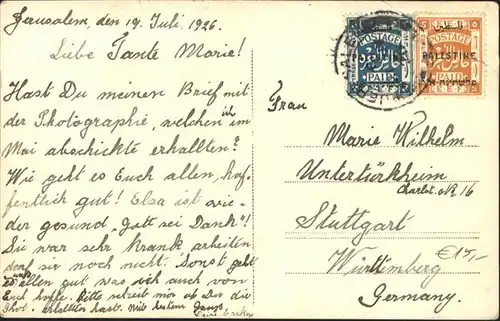 Jerusalem, den 19. Juli. 1926.
Liebe Tante Marie!
Hast Du meinen Brief mit
der Photographie, welchen ich im
Mai abschickte erhallten?
Wie geht es Euch allen, hof-
fentlich gut! Elsa ist wie-
der gesund, Gott sei Dank!
Sie war sehr krank arbeiten
darf sie noch nicht. Sonst geht
es uns allen gut was ich auch von
Euch hoffe. Bitte schreib mir ob Du die
Phot. erhallten hast. Mit bestem Gruss
Deine Erika
POSTAGE
PAID
POSTAGE
PALESTINE
PAID
Frau
Marie Wilhelm
Untertürkheim
Charlot. str. 16
Stuttgart
Württemberg
€15,-
Germany.